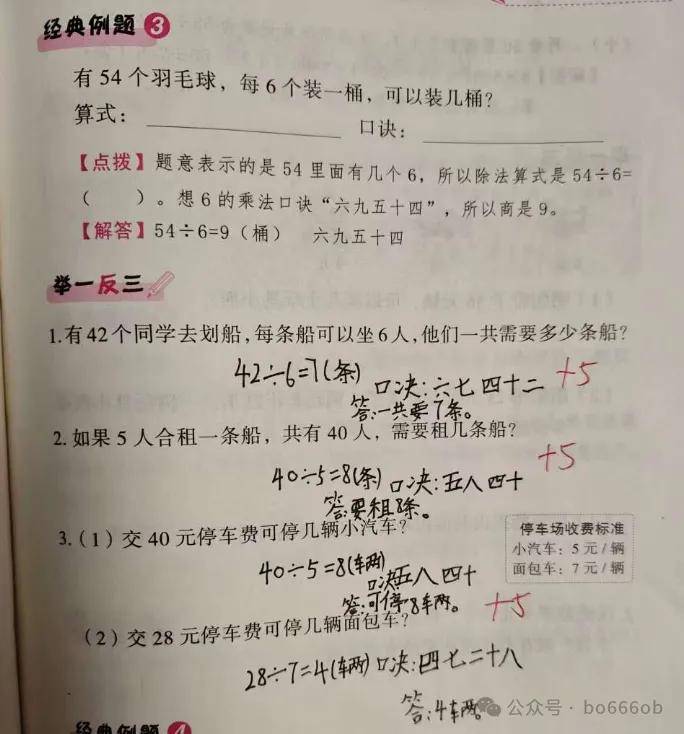 经典例题 3
有 54 个羽毛球，每 6 个装一桶，可以装几桶？
算式：____________ 口诀：____________
【点拨】题意表示的是 54 里面有几个 6，所以除法算式是 54÷6=
（　　）。想 6 的乘法口诀“六九五十四”，所以商是 9。
【解答】54÷6=9（桶）　六九五十四
举一反三
1.有42个同学去划船，每条船可以坐6人，他们一共需要多少条船？
42÷6=7(条) 口决：六七四十二 +5
答:一共要7条。
2.如果 5 人合租一条船，共有 40 人，需要租几条船？
+5
40÷5=8(条) 口决：五八四十
答:要租8条。
3.（1）交 40 元停车费可停几辆小汽车？
停车场收费标准
小汽车：5 元/辆
面包车：7 元/辆
40÷5=8(车两) 口决五八四十
答:可停8车两。 +5
（2）交 28 元停车费可停几辆面包车？
28÷7=4(车两) 口决：四七二十八
答:4车两。
公众号·bo666ob
经典例题 4